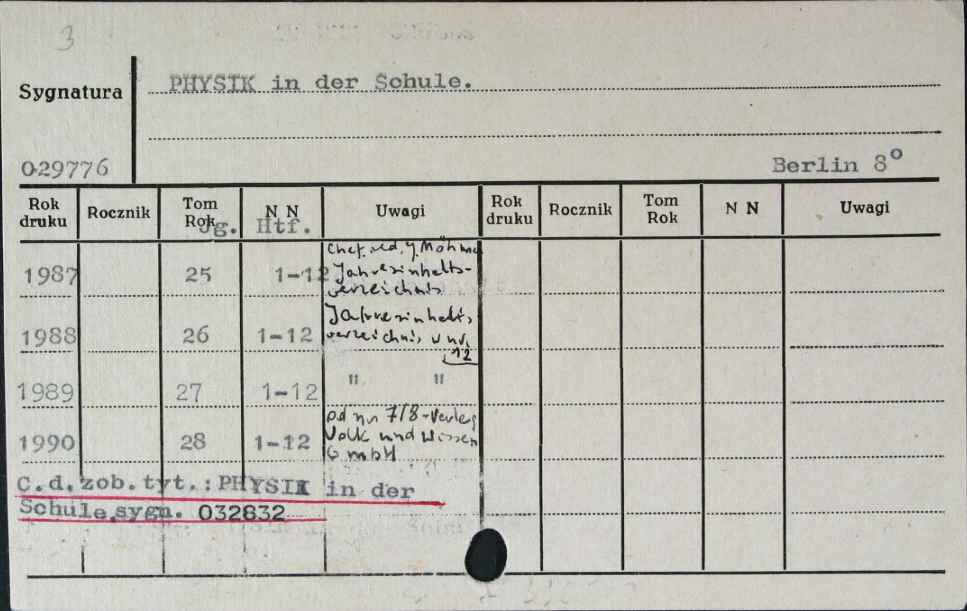 3
Sygnatura
PHYSIK in der Schule.
029776
Berlin 8°
Rok druku Rocznik Tom Rok Jg. N N Htf. Uwagi Rok druku Rocznik Tom Rok N N Uwagi
Chef. red. J. Möhme
1987 25 1-12 Jahresinhalts-
verzeichnis
Jahresinhalts
1988 26 1-12 verzeichnis w nr
12
1989 27 1-12 " "
od nr 7/8-Verlag
1990 28 1-12 Volk und Wissen
GmbH
C.d.zob.tyt.:PHYSIK in der
Schule,sygn. 032832